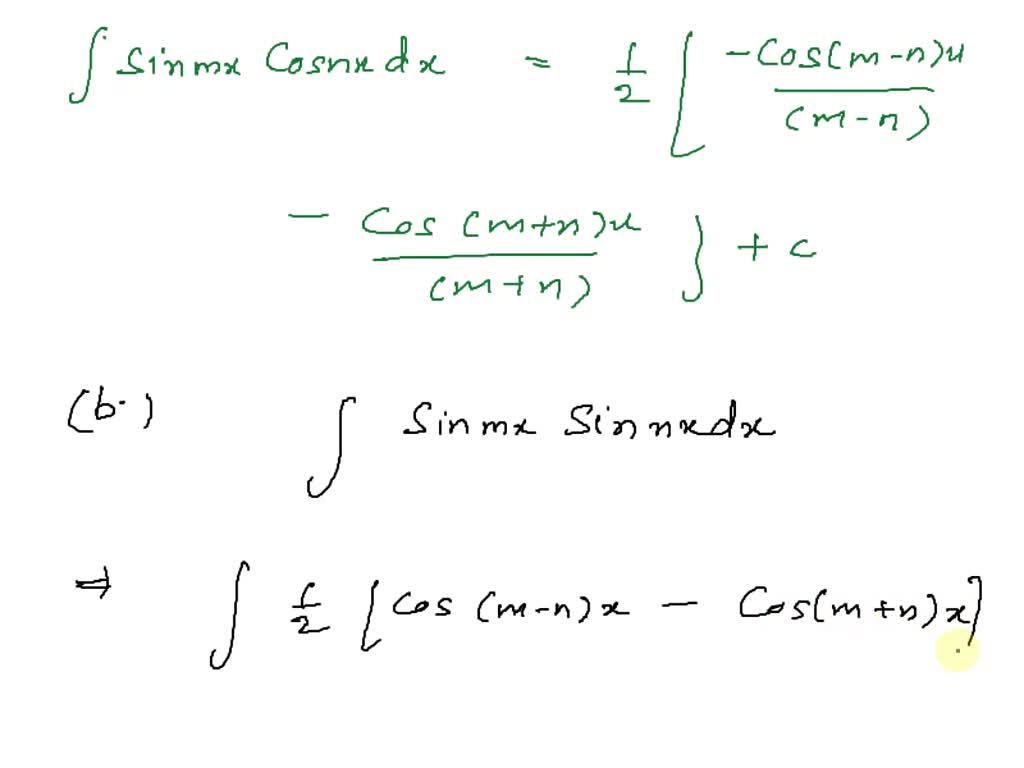 ∫ Sin mx Cos nx dx = 1/2 [ -Cos(m-n)x / (m-n)
- Cos (m+n)x / (m+n) } + c
(b.) ∫ Sin mx Sin nx dx
⇒ ∫ 1/2 [ Cos (m-n)x - Cos(m+n)x ]